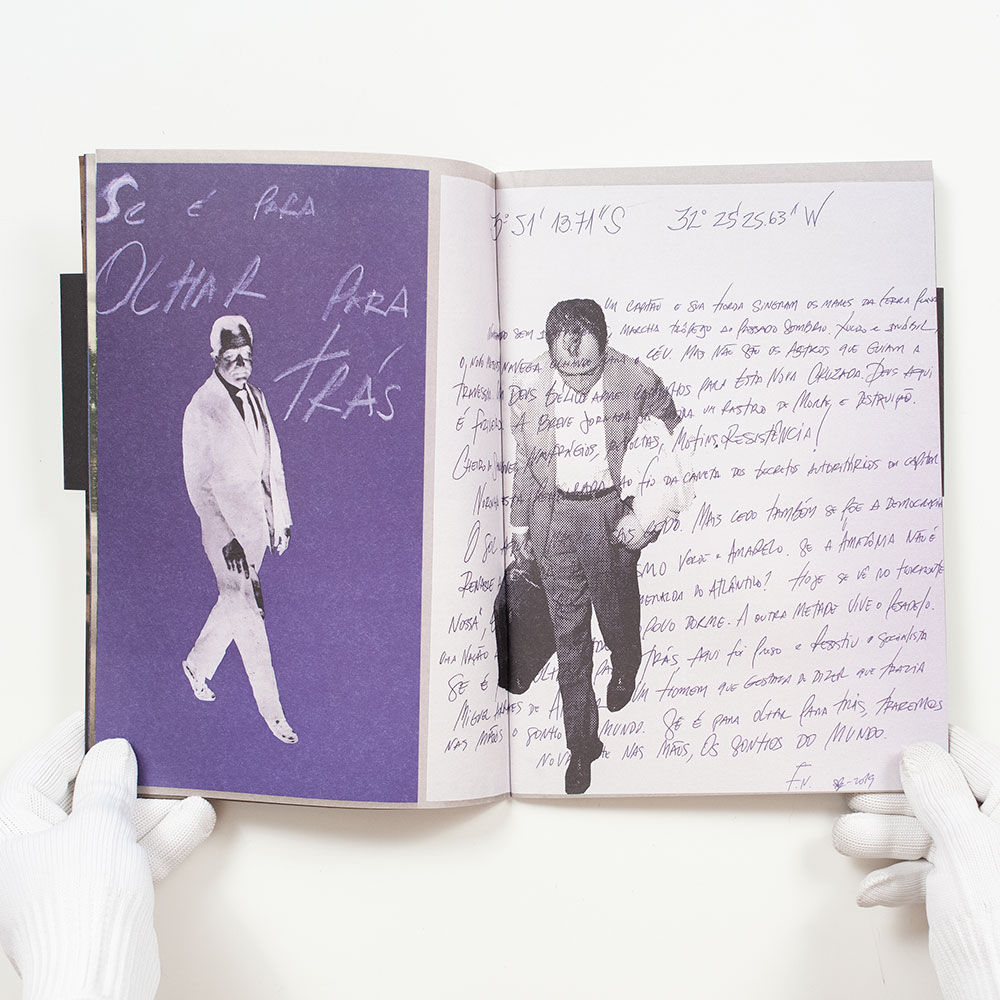 Se É PARA
OLHAR PARA
TRÁS
3° 51' 13.71" S 32° 25' 25.63" W
UM CAPITÃO E SUA HORDA SINGRAM OS MARES DA TERRA PLANA
SEM MARCHA TRÔPEGO AO PASSADO SOMBRIO. TOSCO E INÁBIL,
O NOVO NAVEGA OLHANDO PARA O CÉU. MAS NÃO SÃO OS ASTROS QUE GUIAM A
TRAVESSIA. UM DEUS BÉLICO ABRE CAMINHOS PARA ESTA NOVA CRUZADA. DEUS AQUI
É FUZIL. A BREVE JORNADA UM RASTRO DE MORTE E DESTRUIÇÃO.
CHEIRO NAUFRÁGIOS, REVOLTAS, MOTINS, RESISTÊNCIA!
NORONHA ESTÁ AO FIO DA CANETA DOS DECRETOS AUTORITÁRIOS DO CAPITÃO
O SOL CEDO. MAIS CEDO TAMBÉM SE PÕE A DEMOCRACIA
VERDE E AMARELO. SE A "AMAZÔNIA NÃO É
NOSSA", ESMERALDA DO ATLÂNTICO? HOJE SE VÊ NO HORIZONTE
UMA NAÇÃO POVO DORME. A OUTRA METADE VIVE O PESADELO.
SE É OLHAR PARA TRÁS AQUI FOI PRESO E RESISTIU O SOCIALISTA
MIGUEL ARRAES DE UM HOMEM QUE GOSTAVA DE DIZER QUE TRAZIA
NAS MÃOS O SONHO DO MUNDO. SE É PARA OLHAR PARA TRÁS, TRAREMOS
NOVAMENTE NAS MÃOS, OS SONHOS DO MUNDO.
F.N. 2019